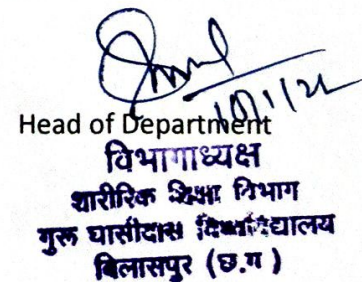 Head of Department
विभागाध्यक्ष
शारीरिक शिक्षा विभाग
गुरू घासीदास विश्वविद्यालय
बिलासपुर (छ.ग )